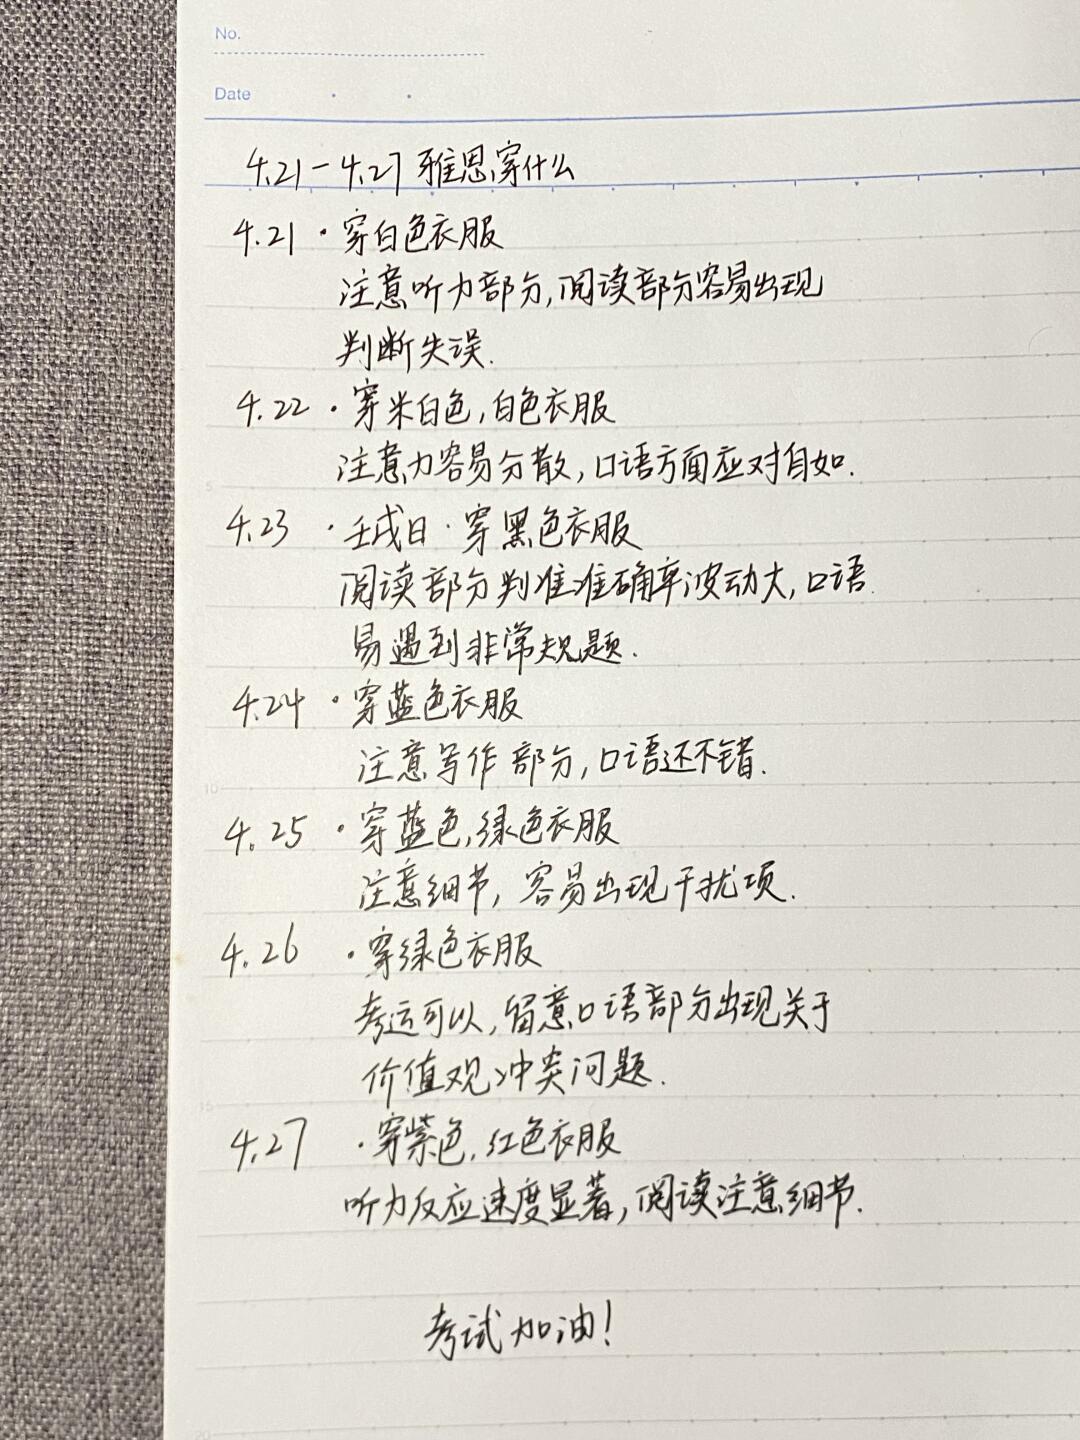 No.
Date
4.21-4.27 雅思穿什么
4.21 · 穿白色衣服
注意听力部分,阅读部分容易出现
判断失误.
4.22 · 穿米白色,白色衣服
注意力容易分散,口语方面应对自如.
4.23 · 壬戌日 · 穿黑色衣服
阅读部分判准准确率波动大,口语
易遇到非常规题.
4.24 · 穿蓝色衣服
注意写作部分,口语还不错.
4.25 · 穿蓝色,绿色衣服
注意细节,容易出现干扰项.
4.26 · 穿绿色衣服
考运可以,留意口语部分出现关于
价值观冲突问题.
4.27 · 穿紫色,红色衣服
听力反应速度显著,阅读注意细节.
考试加油!
5
10
15
20